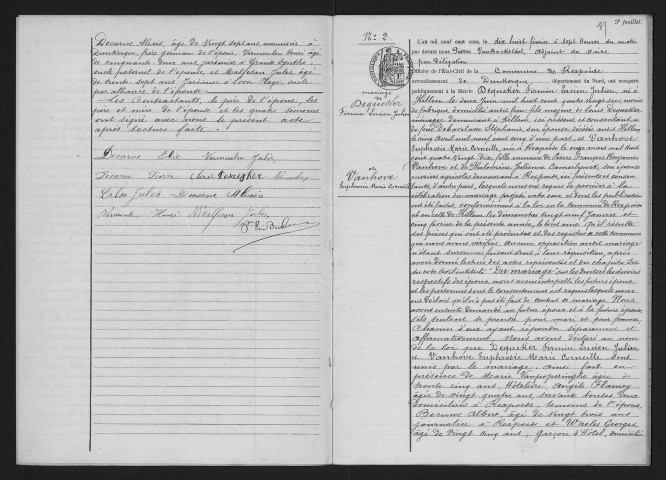 Decarne Alexis, âgé de Vingt sept ans, menuisier à
Dunkerque, frère germain de l'époux, Vermeulen Henri âgé
de cinquante deux ans, jardinier à Grande Synthe,
oncle paternel de l'épouse, et Malfesan Jules âgé
de trente sept ans, Jardinier à Loon Plage, oncle
par alliance de l'épouse.
Les Contractants, le père de l'épouse, les
père et mère de l'époux et les quatre témoins
ont signé avec nous le présent acte
après lecture faite.
Decarne Elie Vermeulen Julie
Decarne Pierre Claire Dekeigher
Decarne Alexis
Henri
2e feuillet.
N° 2
mariage
De
Dequeker
Firmin Lucien Julien
et de
Vanhove
Euphrosie Marie Corneille
L'an mil neuf cent onze, le dix huit février à sept heures du matin
par devant nous Pierre Adjoint au maire
par délégation
Officier de l'État-Civil de la Commune de Rexpoëde
arrondissement de Dunkerque, département du Nord, ont comparu
publiquement à la Mairie Dequeker Firmin Lucien Julien, né à
Killem, le deux Juin mil huit cent quatre vingt six, ouvrier
de fabrique, domicilié fils majeur de Louis Dequeker
ménager demeurant à Killem, ici présent et consentant et
de feue Stéphanie, son épouse, décédée audit Killem
le cinq avril mil neuf cent cinq d'une part, et Vanhove
Euphrosie Marie Corneille, née à Rexpoëde le onze mars mil huit
cent quatre vingt dix, fille mineure de Pierre François Benjamin
Vanhove et de Philomène Julienne son épouse
ouvriers agricoles demeurant à Rexpoëde, ici présents et consen-
tants, d'autre part, lesquels nous ont requis de procéder à la
célébration du mariage projeté entre eux et dont les publications
ont été faites, conformément à la loi en la Commune de Rexpoëde
et en celle de Killem les dimanches vingt neuf Janvier et
cinq février de la présente année, le tout ainsi qu'il résulte
des pièces qui ont été produites et des registres de cette commune
que nous avons vérifiés. Aucune opposition au dit mariage
n'étant survenue, faisant droit à leur réquisition, après
avoir donné lecture des actes représentés et du chapitre six
du code civil intitulé "Du mariage" sur les droits et les devoirs
respectifs des époux, avons interpellé les futurs époux
et les personnes dont le consentement est requis lesquels nous
ont déclaré qu'il n'a pas été fait de contrat de mariage. Nous
avons ensuite demandé au futur époux et à la future épouse
s'ils veulent se prendre pour mari et pour femme,
Chacun d'eux ayant répondu séparément et
affirmativement, Nous avons déclaré au nom
de la loi que Dequeker Firmin Lucien Julien
et Vanhove Euphrosie Marie Corneille sont
unis par le mariage, ainsi fait en
présence de Marie Vanpoperinghe âgée de
trente cinq ans, Hôtelière, Angèle Flaney
âgée de vingt quatre ans, servante toutes deux
domiciliées à Rexpoëde, témoins de l'époux,
Becuwe Albert, âgé de vingt trois ans
journalier à Rexpoëde et Waeles Georges
âgé de vingt cinq ans, garçon d'Hôtel, domicilié